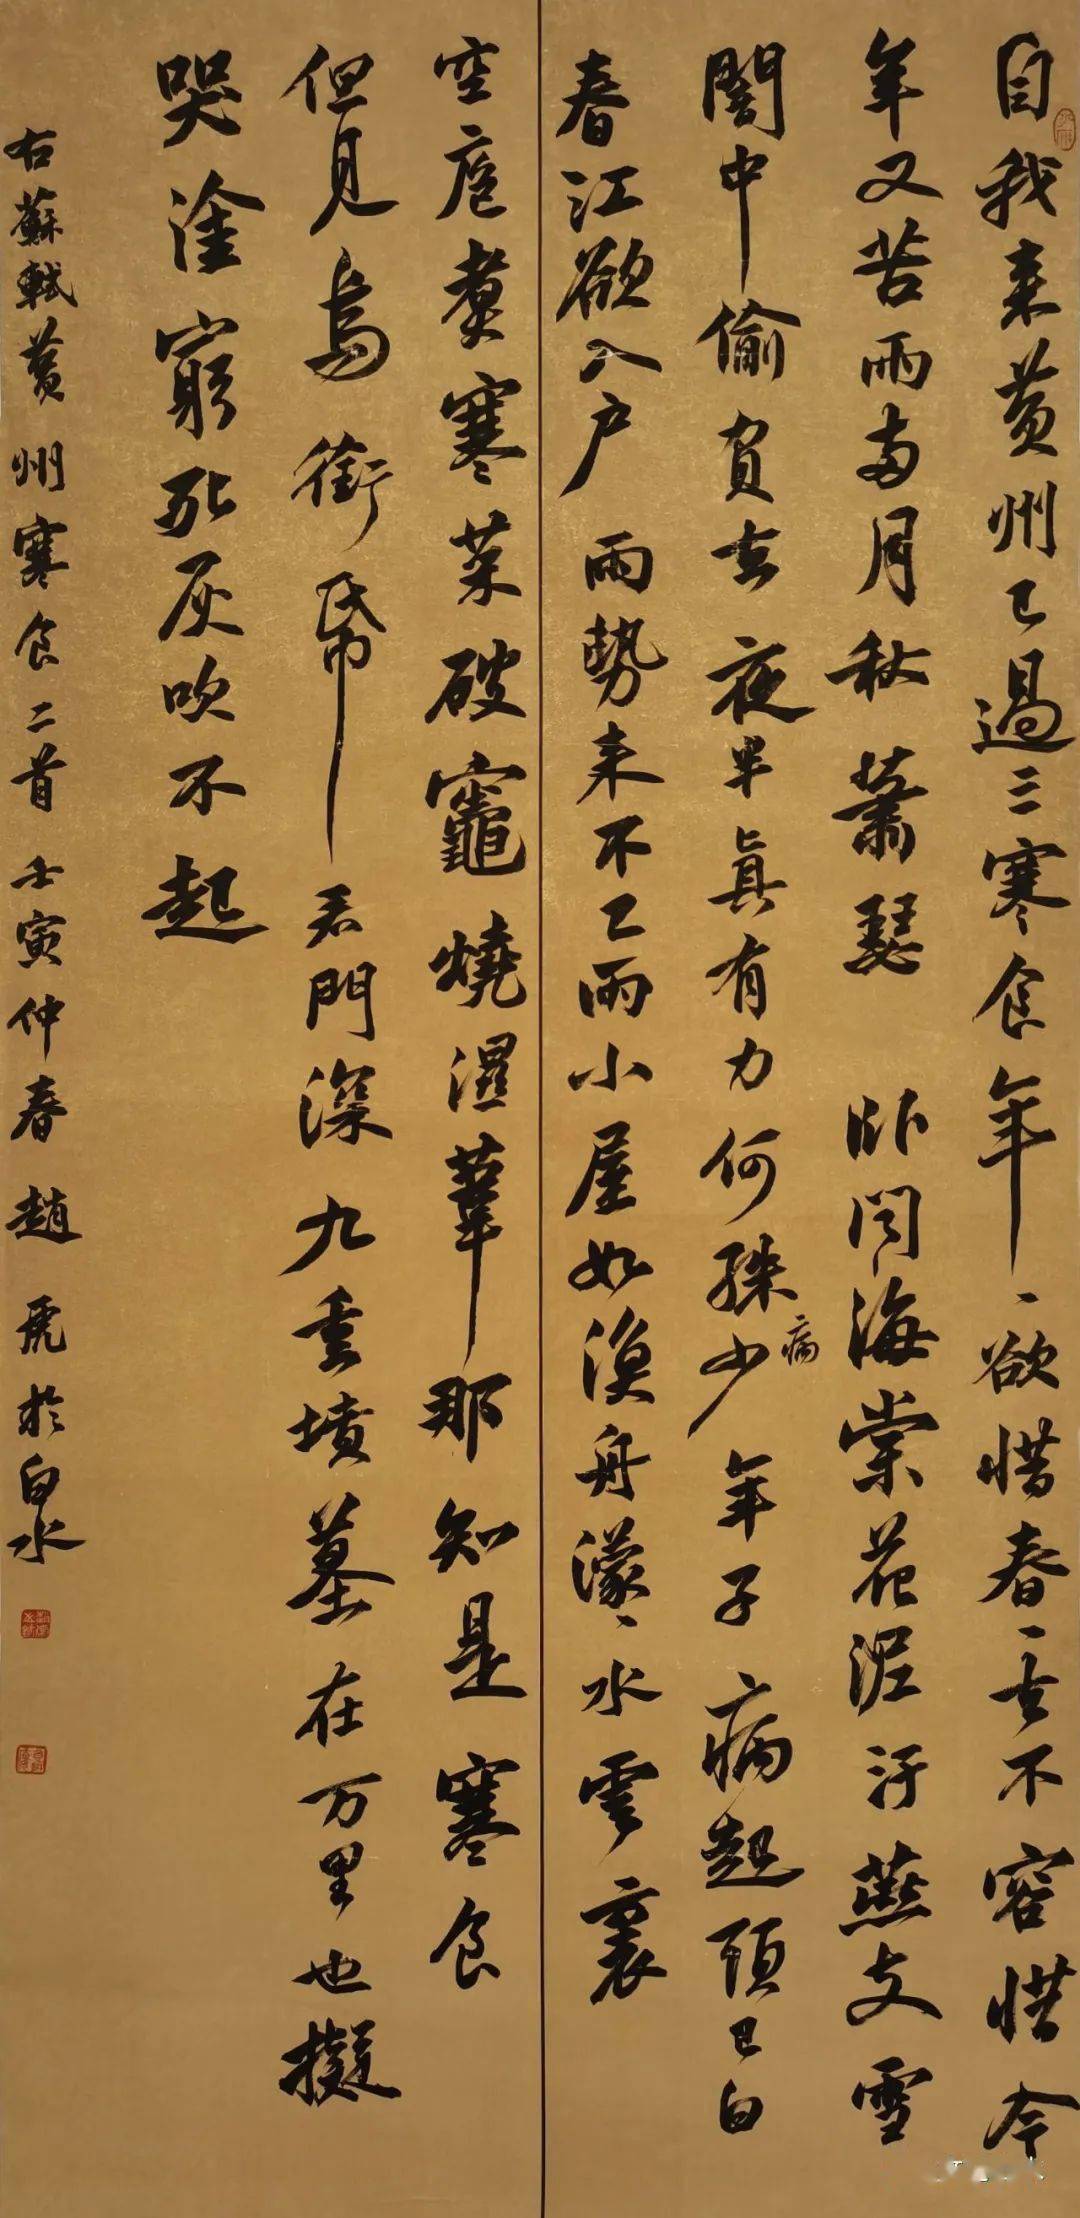 自我来黄州已過三寒食年、欲惜春、去不容惜今
年又苦雨兩月秋蕭瑟卧聞海棠花泥汙燕支雪
闇中偷負去夜半真有力何殊少年子病起頭已白
病
春江欲入户雨勢来不已雨小屋如漁舟濛、水雲裏
空庖煮寒菜破竈燒濕葦那知是寒食
但見烏銜帋君門深九重墳墓在万里也擬
哭塗窮死灰吹不起
右蘇軾黄州寒食二首壬寅仲春趙虎於白水